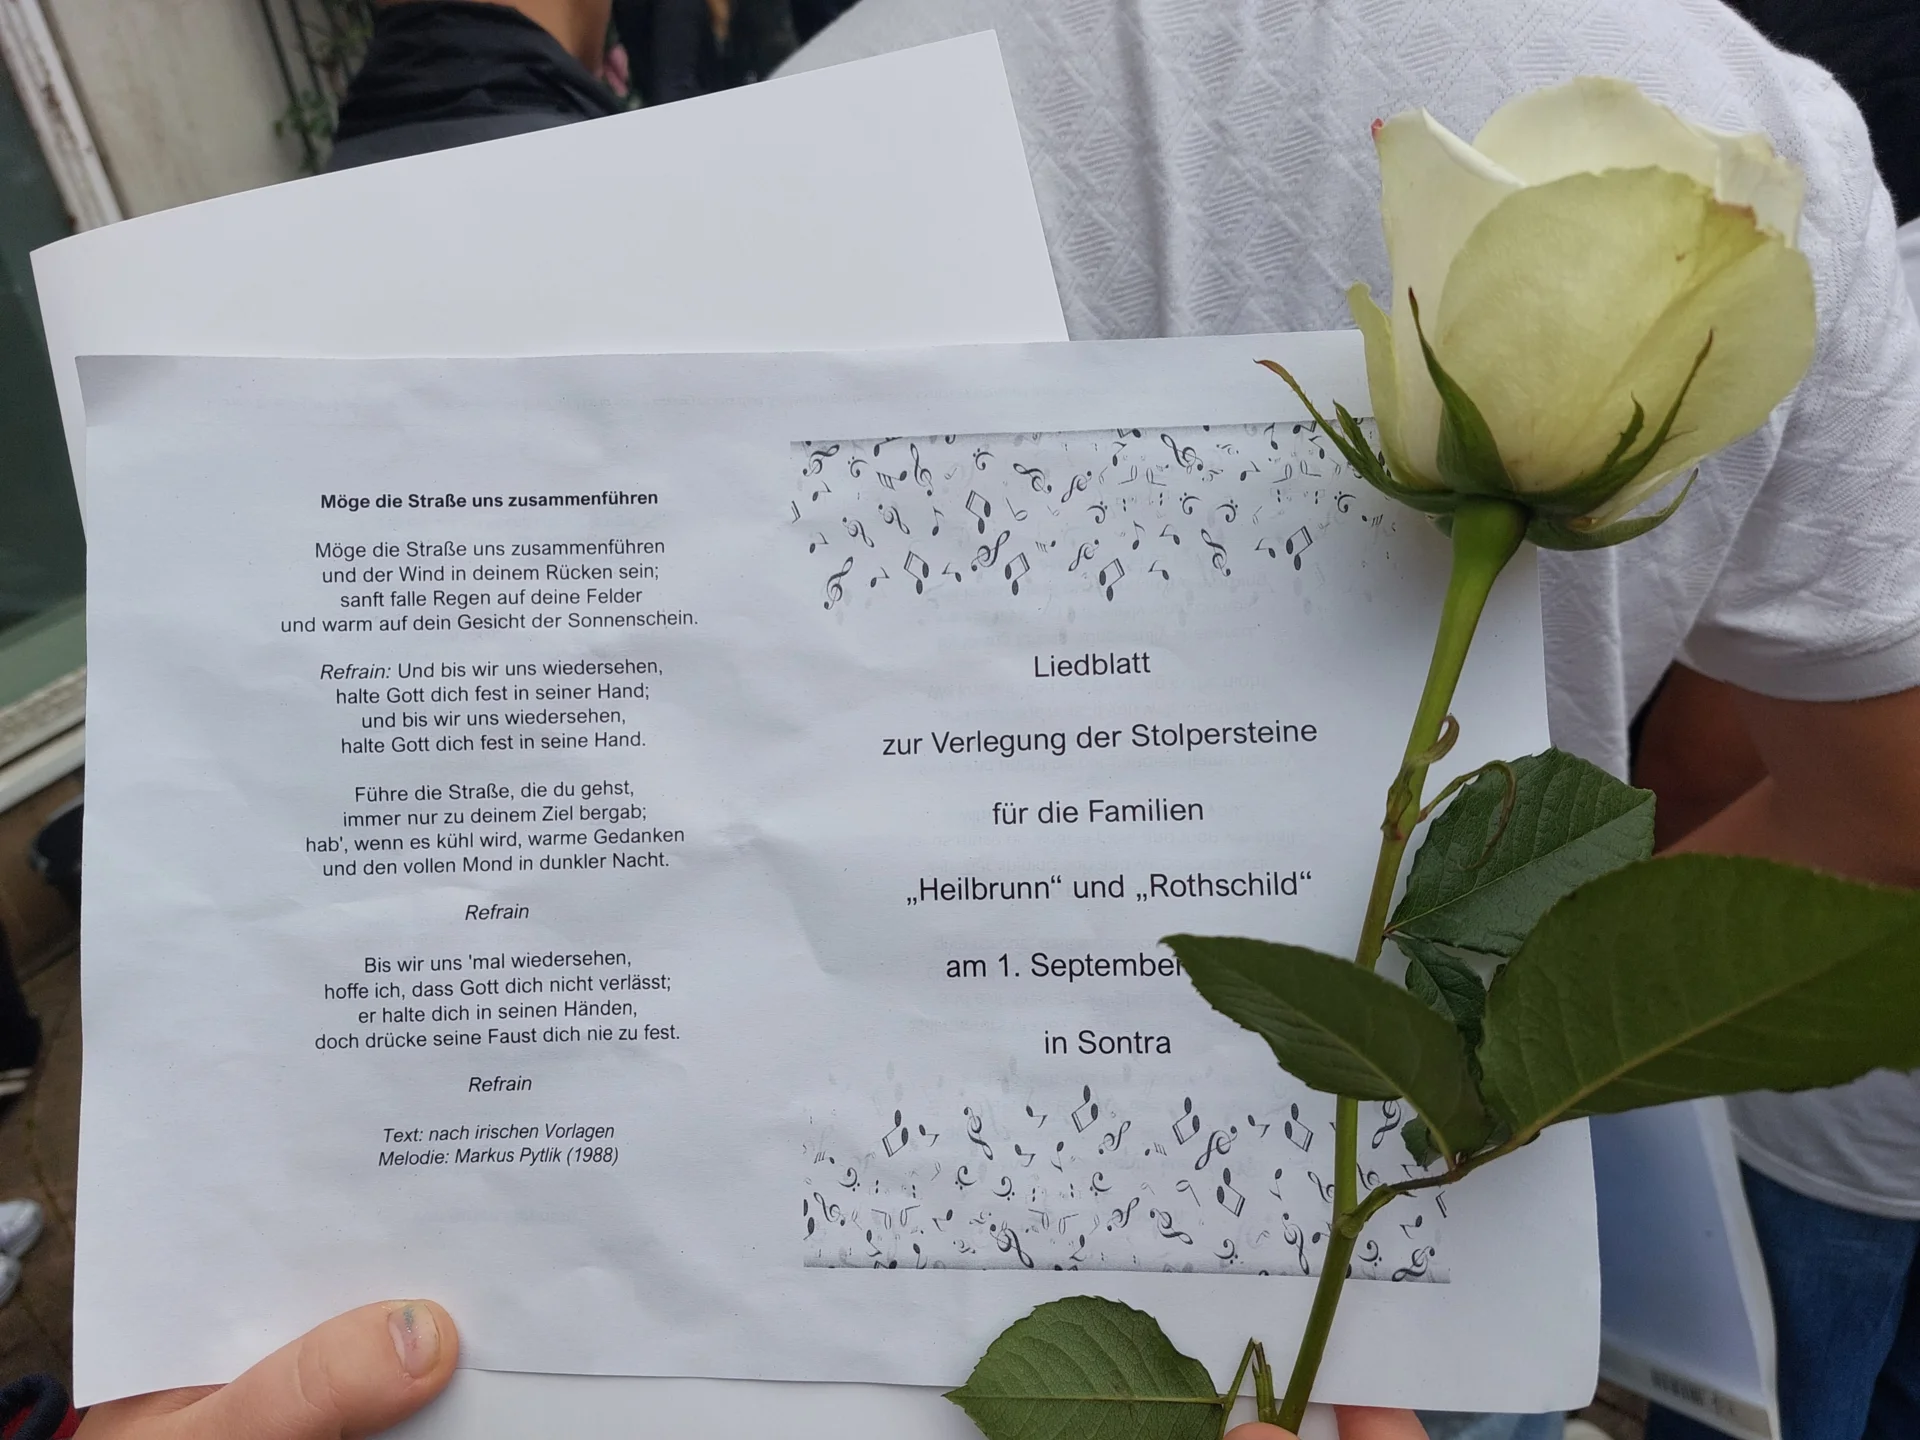 Möge die Straße uns zusammenführen
Möge die Straße uns zusammenführen
und der Wind in deinem Rücken sein;
sanft falle Regen auf deine Felder
und warm auf dein Gesicht der Sonnenschein.
Refrain: Und bis wir uns wiedersehen,
halte Gott dich fest in seiner Hand;
und bis wir uns wiedersehen,
halte Gott dich fest in seine Hand.
Führe die Straße, die du gehst,
immer nur zu deinem Ziel bergab;
hab', wenn es kühl wird, warme Gedanken
und den vollen Mond in dunkler Nacht.
Refrain
Bis wir uns 'mal wiedersehen,
hoffe ich, dass Gott dich nicht verlässt;
er halte dich in seinen Händen,
doch drücke seine Faust dich nie zu fest.
Refrain
Text: nach irischen Vorlagen
Melodie: Markus Pytlik (1988)
Liedblatt
zur Verlegung der Stolpersteine
für die Familien
„Heilbrunn“ und „Rothschild“
am 1. September
in Sontra